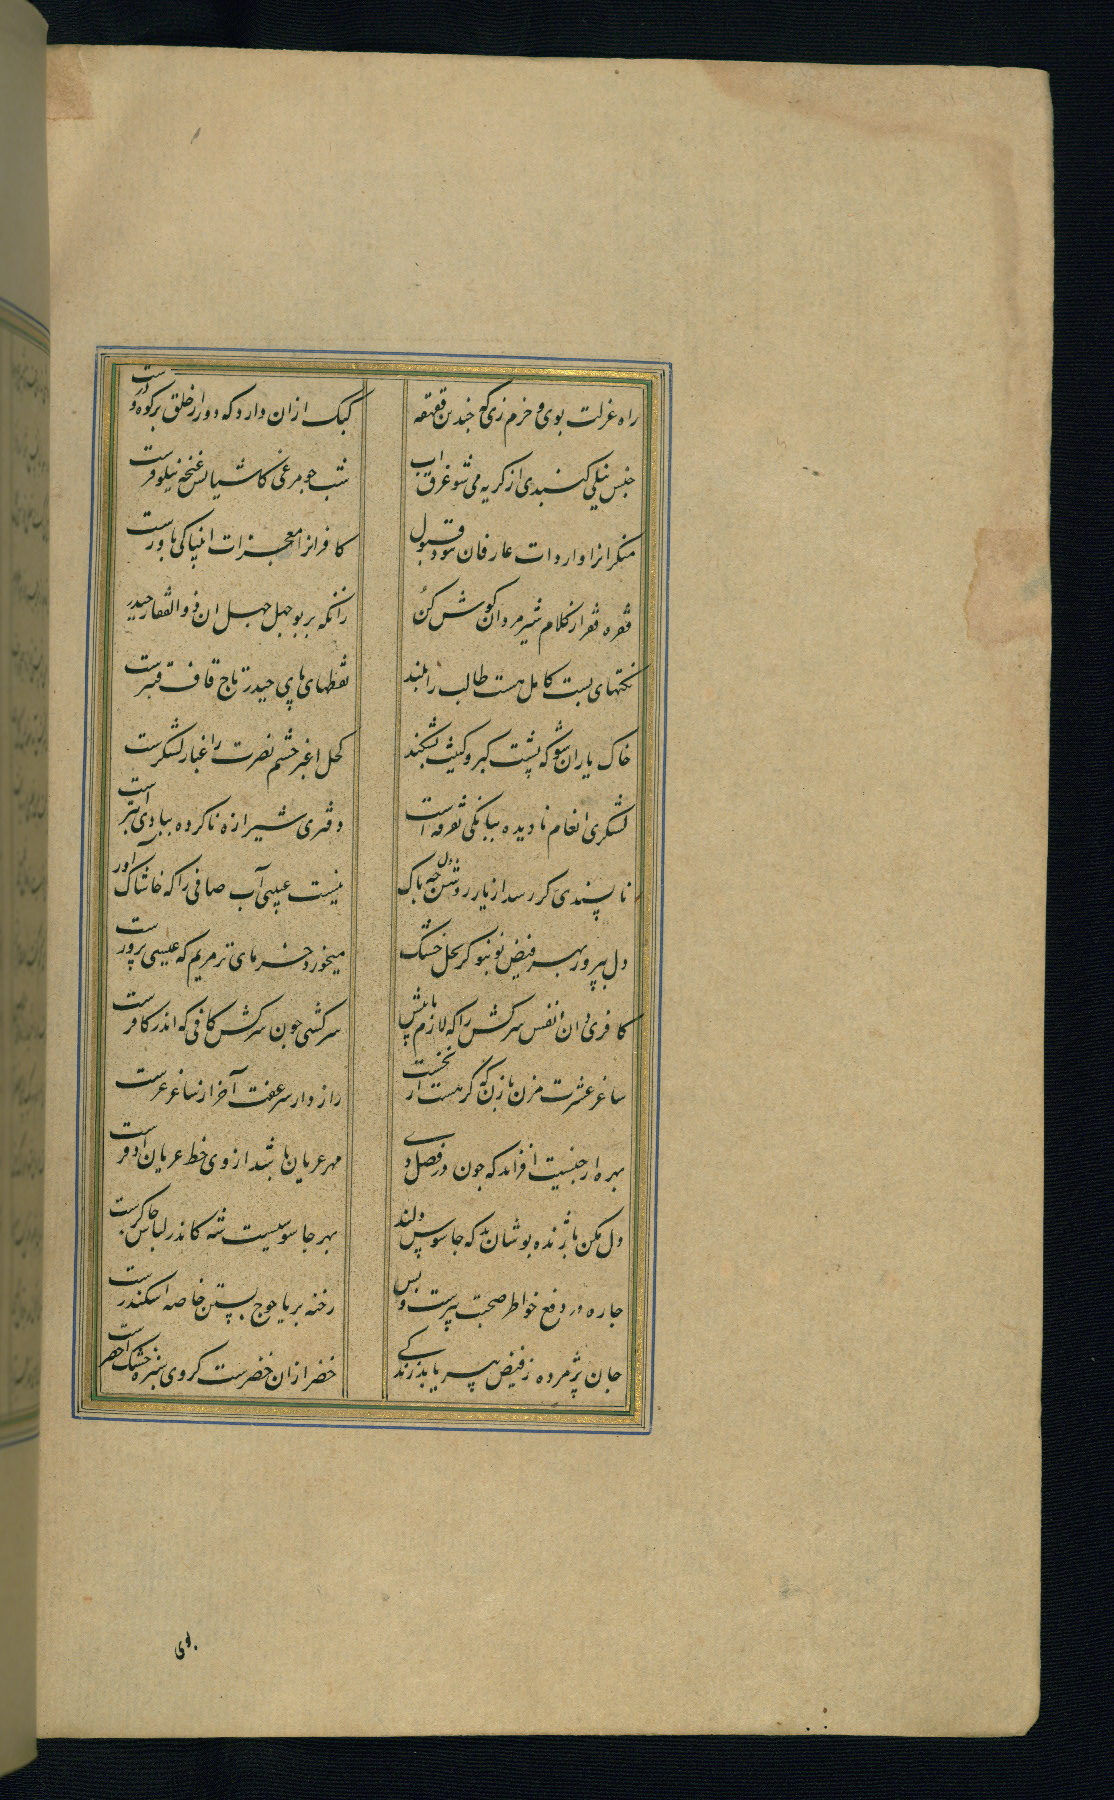 راه عزلت پوی و خرم زی که خندین قهقهه
کبک ازان دارد که دور از خلق بر کوه و درست
جنس نیلی کنبدی از کریه می شو غرق آب
شب جو مرغی کاشیانش غنچه نیلوفرست
منکرانرا واردات عارفان نبود قبول
کافرانرا معجزات انبیا کی باورست
فقره فقر از کلام شیرمردان کوش کن
زانکه بر بوجهل جهل ان ذوالفقار حیدر
نکتهای پست کامل هست طالب را بلند
نقطهای پای حیدر تاج قاف قنبرست
خاک یاران شو که پشت کبر و کینت بشکند
کحل اغبر چشم نصرت را غبار لشکرست
لشکری انعام نادیده ببانکی تفرقه است
دفتری شیرازه ناکرده ببادی ابترست
ناپسندی کر رسد از یار روشن دل چه باک
نیست عیبی آب صافی را که خاشاک آورست
دل بپرور بهر فیض نو بنو کز نخل خشک
میخورد خرمای تر مریم که عیسی پرورست
کافری دان نفس سرکش را که لازم باشدش
سرکشی چون سرکش کافی که اندر کافرست
ساغر عشرت مزن با زن که گر هست از نخست
رازدار سر عفت آخر از ساغر غرست
بهره از جنسیت افزاید که چون در فصل دی
مهر عریان باشد از وی خط عریان اوفرست
دل مکن با ژنده پوشان بد که جاسوس دلند
بهر جاسوسیست شه کاندر لباس چاکرست
چاره در دفع خواطر صحبت پیرست و بس
رخنه بر یاجوج بستن خاصه اسکندرست
جان پژمرده ز فیض پیر یابد زندکی
خضر ازان خضرست کز وی سبزه خشک اخضرست